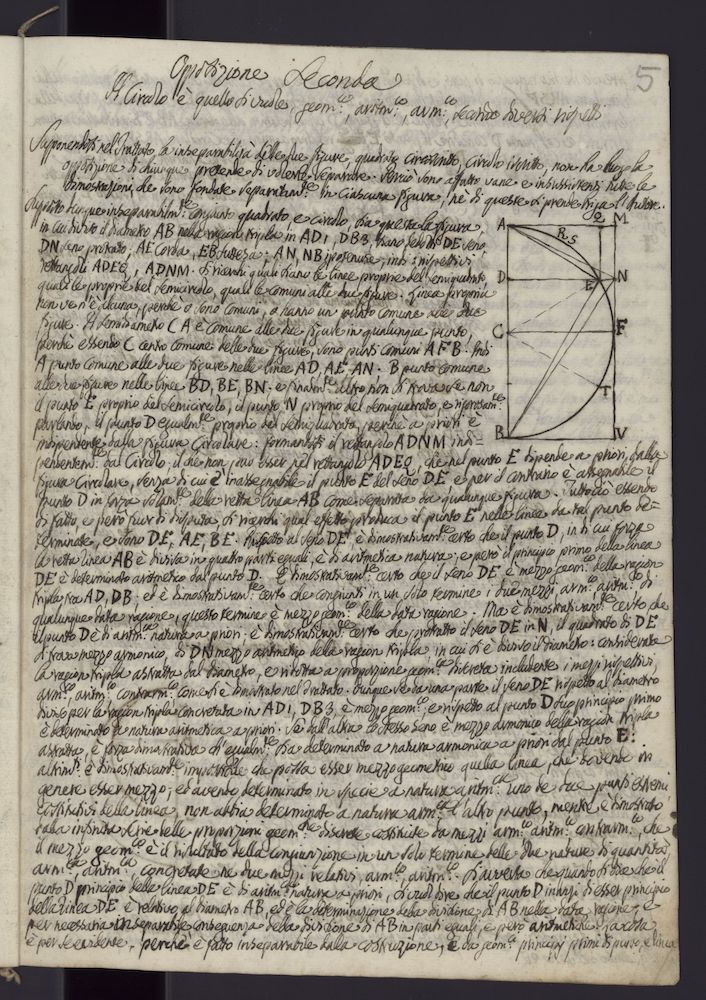 5
Opposizione Seconda
Il Circolo è quello di cui le geom.co, aritm.co, arm.co, secondo diversi rispetti
Supponendosi nel Trattato la inseparabilità delle due figure, quadrato circoscritto, circolo iscritto, non ha luogo la
opposizione di chiunque pretende di volerle separare. Perciò sono affatto vane e insussistenti tutte le
dimostrazioni, che sono fondate separatam.te in ciascuna figura, nè di queste si prende briga l'Autore.
Supposto dunque inseparabilm.te congiunto quadrato e circolo, sia questa la figura,
in cui diviso il diametro AB nella ragion tripla in AD1, DB3, siano DE seno,
DN seno protratto, AE corda, EB suttesa: AN, NB ipotenuse, indi i rispettivi
rettangoli ADEQ, ADNM. Si ricerchi quali siano le linee proprie del semiquadrato,
quali le proprie del semicircolo, quali le comuni alle due figure. Linea propria
non ve n'è alcuna, perchè o sono comuni, o hanno un punto comune alle due
figure. Il semidiametro CA è comune alle due figure in qualunque punto,
perchè essendo C centro comune delle due figure, sono punti comuni AFB. Indi
A punto comune alle due figure nelle linee AD, AE, AN. B punto comune
alle due figure nelle linee BD, BE, BN. e finalm.te altro non si trova se non
il punto E proprio del semicircolo, il punto N proprio del semiquadrato, e
parlando, il punto D egualm.te proprio del semiquadrato, perchè a priori è
indipendente dalla figura Circolare: formandosi il rettangolo ADNM indi-
pendentem.te dal Circolo, il che non può esser nel rettangolo ADEQ, che nel punto E dipende a priori dalla
figura Circolare, senza di cui è inassegnabile il punto E del seno DE, e per il contrario è assegnabile il
punto D in forza solam.te della retta linea AB come separata da qualunque figura. Tutto ciò essendo
di fatto, e però fuor di disputa, si ricerchi qual effetto produca il punto E nelle linee da tal punto de-
terminate, e sono DE, AE, BE. Rispetto al seno DE, è dimostrativam.te certo che il punto D, in di cui forza
la retta linea AB è divisa in quattro parti eguali, è di aritmetica natura; e però il principio primo della linea
DE è determinato aritmetico dal punto D. È dimostrativam.te certo che il seno DE è mezzo geom.co della ragion
tripla tra AD, DB, ed è dimostrativam.te certo che congiunti in un solo termine i due mezzi, arm.co aritm.co di
qualunque data ragione, questo termine è mezzo geom.co della data ragione. Ma è dimostrativam.te certo che
il punto D è di aritm.ca natura a priori. È dimostrativam.te certo che protratto il seno DE in N, il quadrato di DE
si trova mezzo armonico, di DN mezzo aritmetico della ragion tripla, in cui si è diviso il diametro: considerata
la ragion tripla astratta dal diametro, e ridotta a proporzione geom.ca discreta includente i mezzi rispettivi,
arm.co aritm.co contrarm.co come si è dimostrato nel Trattato. Dunque se da una parte il seno DE rispetto al diametro
diviso per la ragion tripla concretata in AD1, DB3, è mezzo geom.co e rispetto al punto D suo principio primo
è determinato a natura aritmetica a priori. Se dall'altra lo stesso seno è mezzo armonico della ragion tripla
astratta, è forza dimostrativa che egualm.te sia determinato a natura armonica a priori dal punto E:
altrim.ti è dimostrativam.te impossibile che possa esser mezzo geometrico quella linea, che dovendo in
genere esser mezzo, ed avendo determinato in specie a natura aritm.ca uno de due punti estremi
costitutivi della linea, non abbia determinato a natura arm.ca l'altro punto, mentre è dimostrato
dalla infinita serie delle proporzioni geom.che discrete costituite da mezzi arm.co aritm.co contrarm.co, che
il mezzo geom.co è il risultato della congiunzione in un solo termine delle due nature di quantità,
arm.ca, aritm.ca concretate ne due mezzi relativi, arm.co, aritm.co. Si avverta che quando si dice che il
punto D principio della linea DE è di aritm.ca natura a priori, si vuol dire che il punto D innanzi di esser principio
della linea DE è relativo al diametro AB, ed è la determinazione della divisione di AB nella data ragione, e
per necessaria inseparabile conseguenza della divisione di AB in parti eguali, e però aritmetiche.
è per se evidente, perchè è fatto inseparabile dalla costruzione, e da geom.ci principj primi di punto, e linea
A
Q
M
R
S
D
E
N
C
F
T
B
V